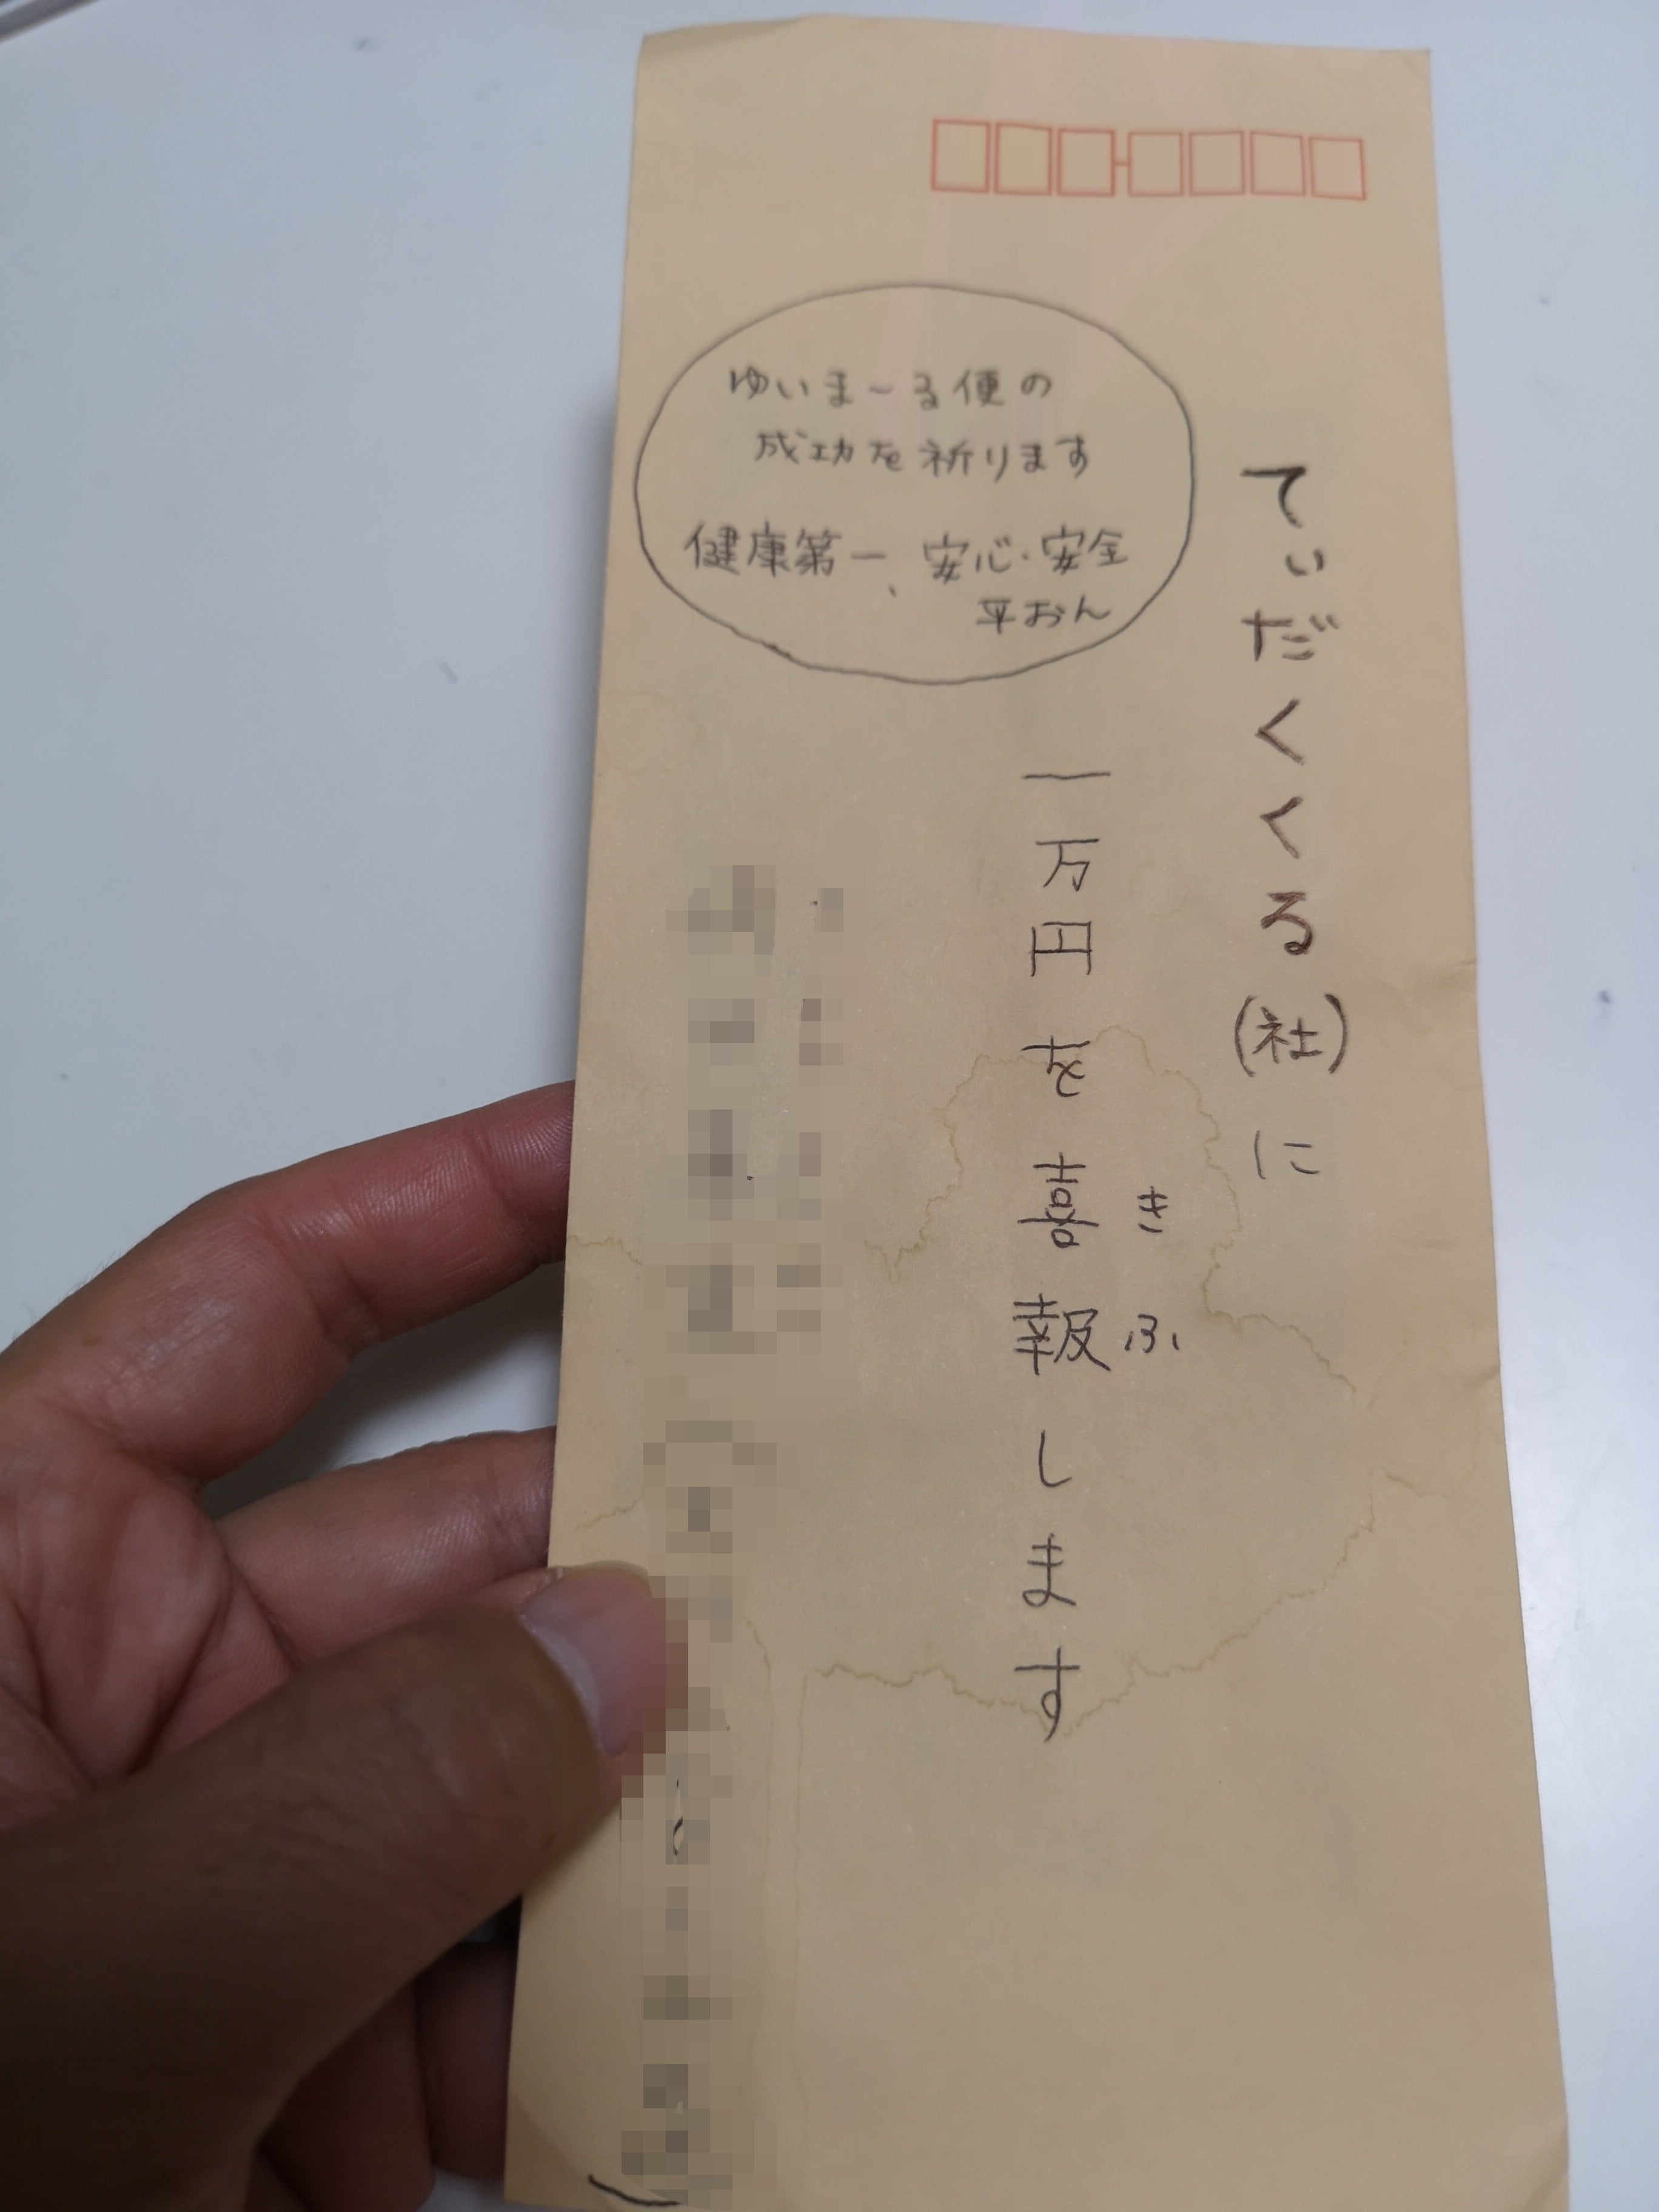 てぃだくくる(社)に
一万円を喜報します
きふ
ゆいま〜る便の
成功を祈ります
健康第一、安心・安全
平おん